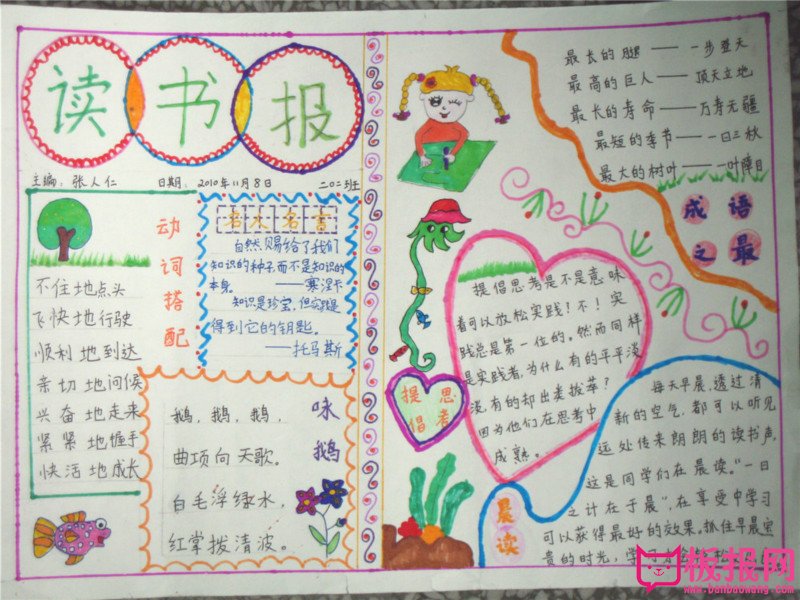 读书报
主编：张人仁 日期：2010年11月8日 二〇二班
动词搭配
不住地点头
飞快地行驶
顺利地到达
亲切地问候
兴奋地走来
紧紧地握手
快活地成长
名人名言
自然赐给了我们
知识的种子，而不是知识的
本身。——塞涅卡
知识是珍宝，但实践是
得到它的钥匙。
——托马斯
咏鹅
鹅，鹅，鹅，
曲项向天歌。
白毛浮绿水，
红掌拨清波。
最长的腿——一步登天
最高的巨人——顶天立地
最长的寿命——万寿无疆
最短的季节——一日三秋
最大的树叶——一叶障目
成语
之最
提倡思考
提倡思考是不是意味
着可以放松实践！不！实
践总是第一位的。然而同样
是实践者，为什么有的平平淡
淡，有的却出类拔萃？
因为他们在思考中
成熟。
晨读
每天早晨，透过清
新的空气，都可以听见
远处传来朗朗的读书声，
这是同学们在晨读。"一日
之计在于晨"，在享受中学习
可以获得最好的效果，抓住早晨宝
贵的时光，学习
板报网
www.banbaowang.com